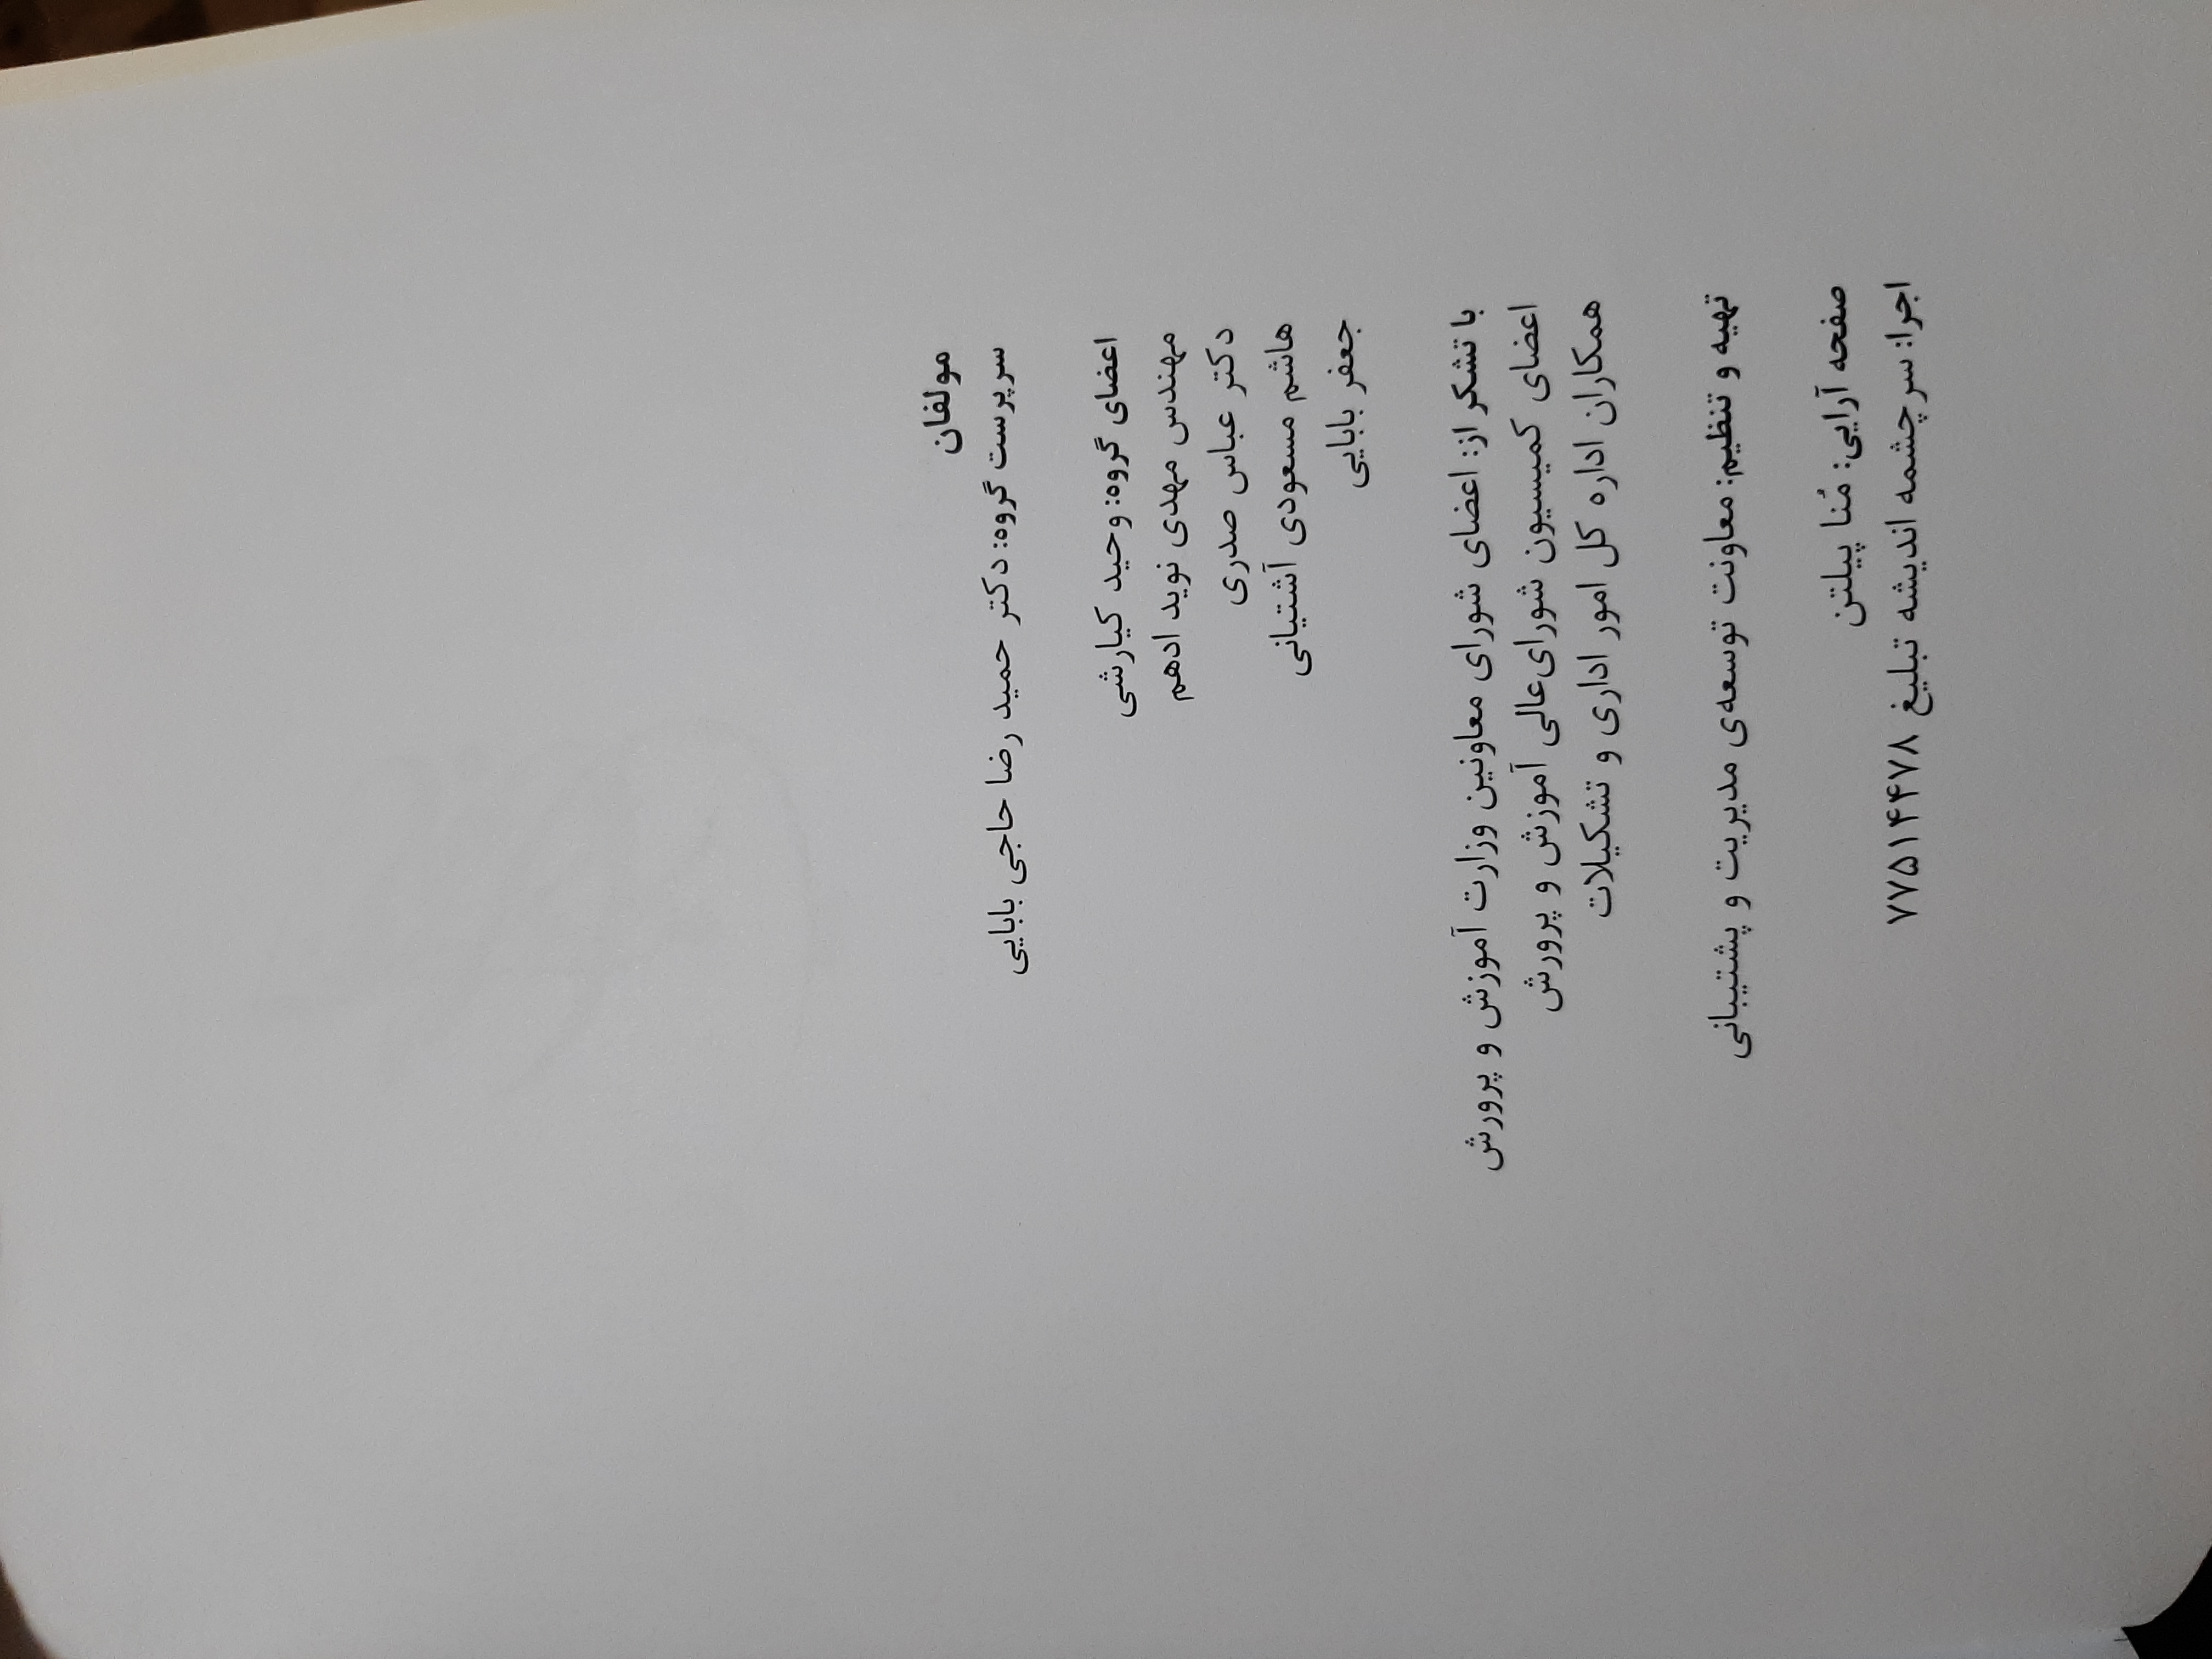 مولفان
سرپرست گروه: دکتر حمید رضا حاجی بابایی
اعضای گروه: وحید کیارشی
مهندس مهدی نوید ادهم
دکتر عباس صدری
هاشم مسعودی آشتیانی
جعفر بابایی
با تشکر از: اعضای شورای معاونین وزارت آموزش و پرورش
اعضای کمیسیون شورای‌عالی آموزش و پرورش
همکاران اداره کل امور اداری و تشکیلات
تهیه و تنظیم: معاونت توسعه‌ی مدیریت و پشتیبانی
صفحه آرایی: مُنا پیلتن
اجرا: سرچشمه اندیشه تبلیغ ۷۷۵۱۴۴۷۸